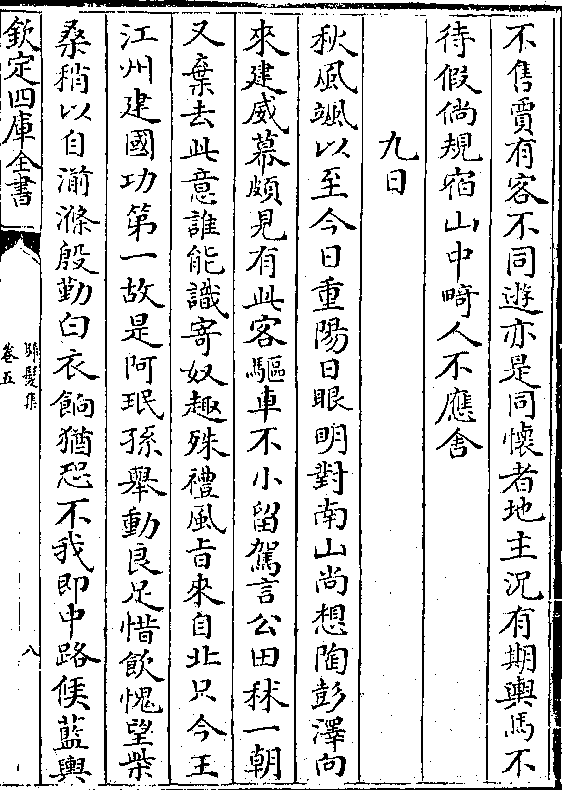 不售賈有客不同遊亦是同懷者地主況有期輿馬不
待假倘規宿山中畸人不應舍
九日
秋風颯以至今日重陽日眼明對南山尚想陶彭澤向
來建威幕頗見有此客驅車不小留駕言公田秫一朝
又棄去此意誰能識寄奴趣殊禮風旨來自北只今王
江州建國功第一故是阿珉孫舉動良足惜飲愧望柴
桑稍以自湔滌殷勤白衣餉猶恐不我即中路候藍輿
欽定四庫全書
晞髪集
卷五
八